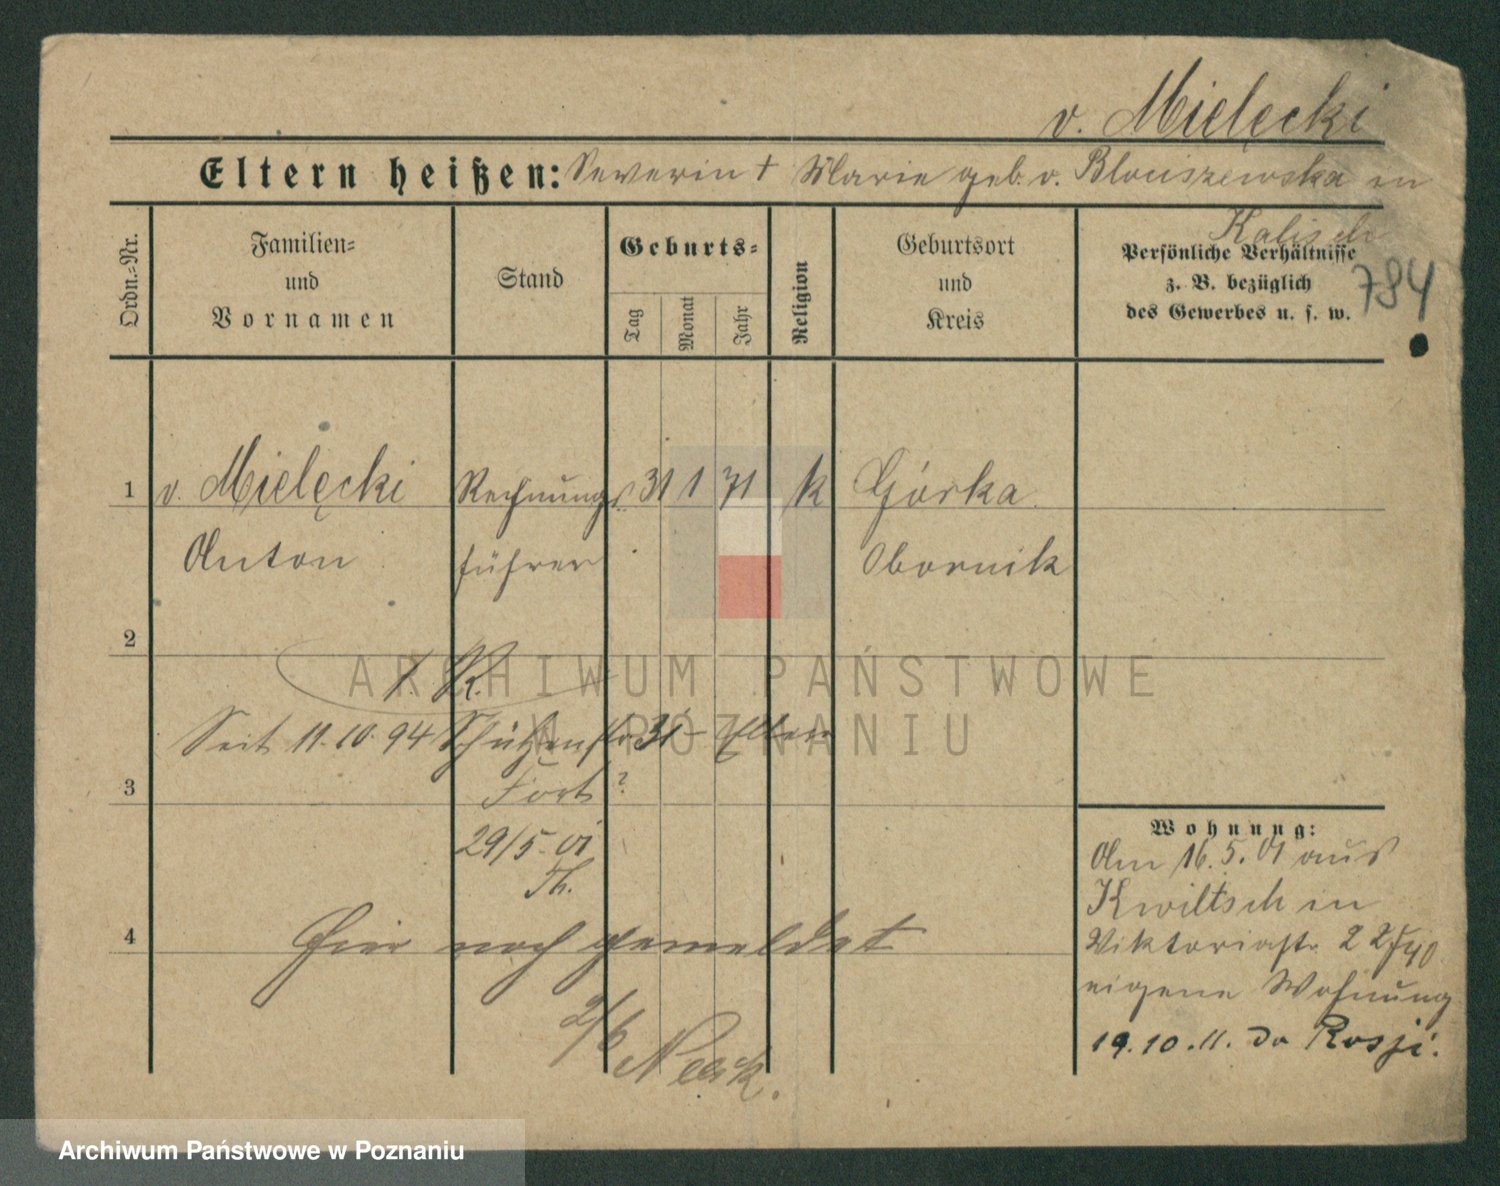 v. Mielęcki
Eltern heißen: Severin † Marie geb. v. Blociszewska in
Kalisch
Ordn.=Nr.
Familien=
und
Vornamen
Stand
Geburts=
Tag
Monat
Jahr
Religion
Geburtsort
und
Kreis
Persönliche Verhältnisse
z. B. bezüglich
des Gewerbes u. s. w.
784
1 v. Mielęcki Rechnungs 31 1 71 k Górka
Anton führer Obornik
2
ARCHIWUM PAŃSTWOWE
W POZNANIU
Seit 11.10.94 Schützenstr. 31 Eltern
3
Fort?
29/5. 01
Th.
4
Hier noch gemeldet
2/6
Wohnung:
Am 16.5.01 aus
Kwiltsch in
Viktoriastr. 22
eigene Wohnung
19.10.11. do Rosji.
Archiwum Państwowe w Poznaniu